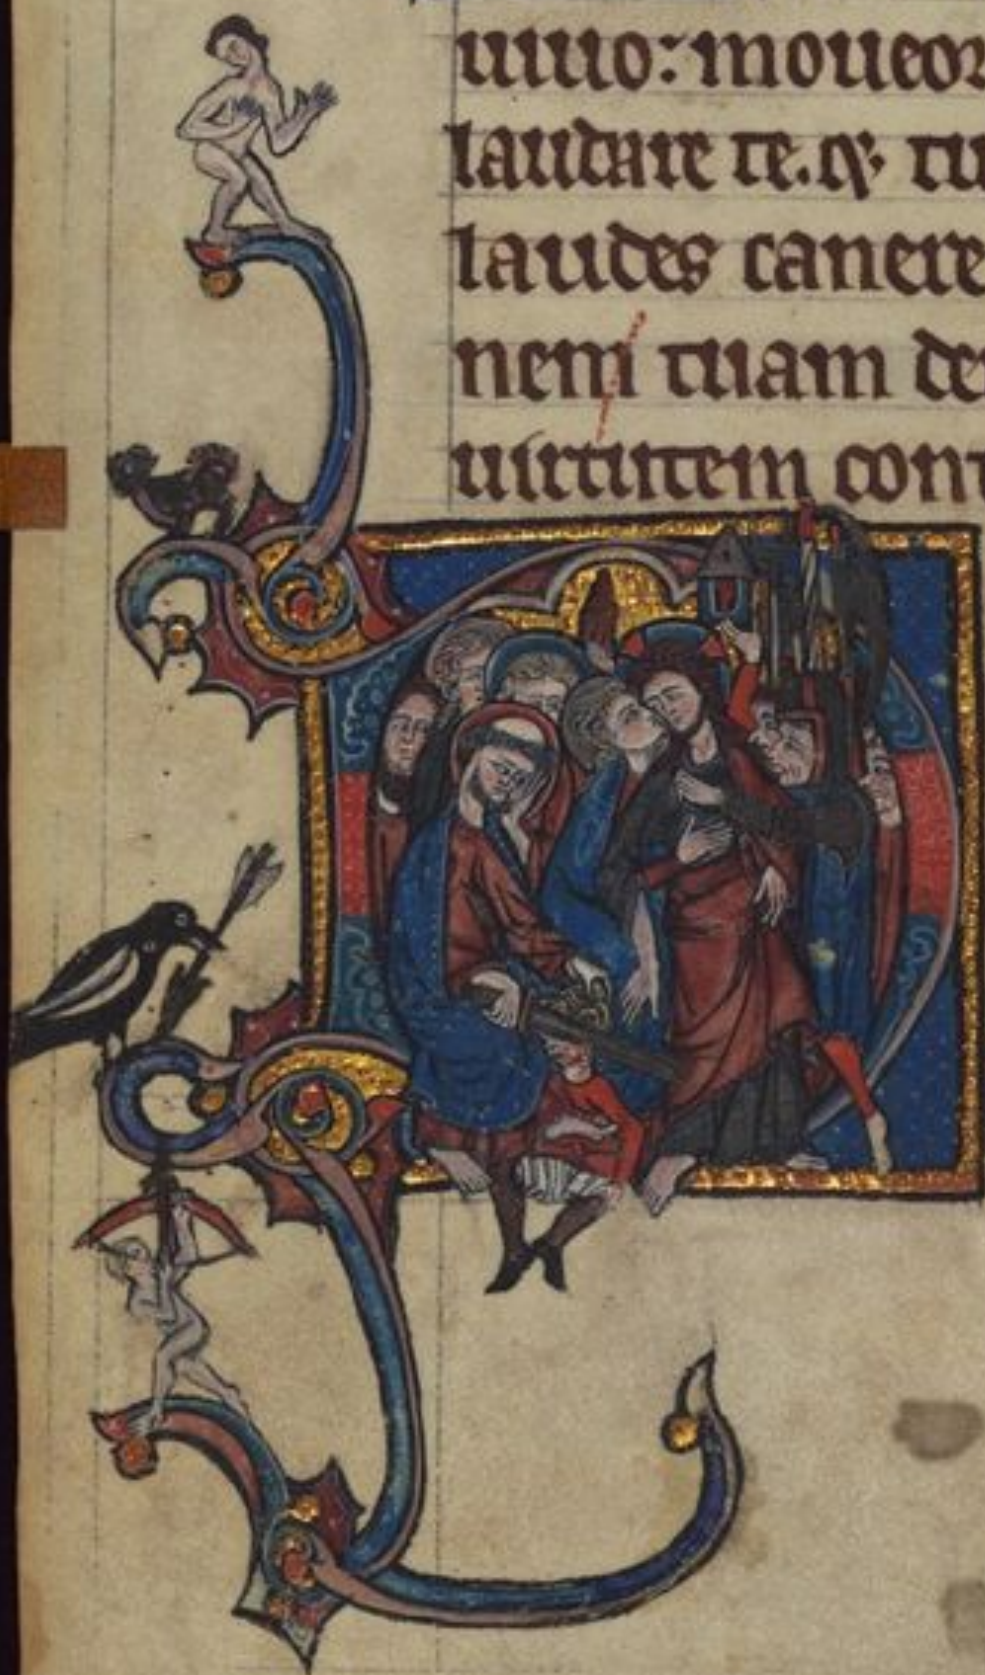 uiuo: moueor
laudare te. qꝫ tu
laudes canere
nem tuam de
uirtutem cont